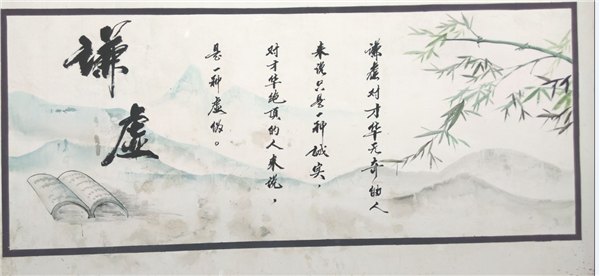 謙虚
谦虚对才华无奇的人
来说只是一种誠实，
对才华绝顶的人来说，
是一种虚伪。